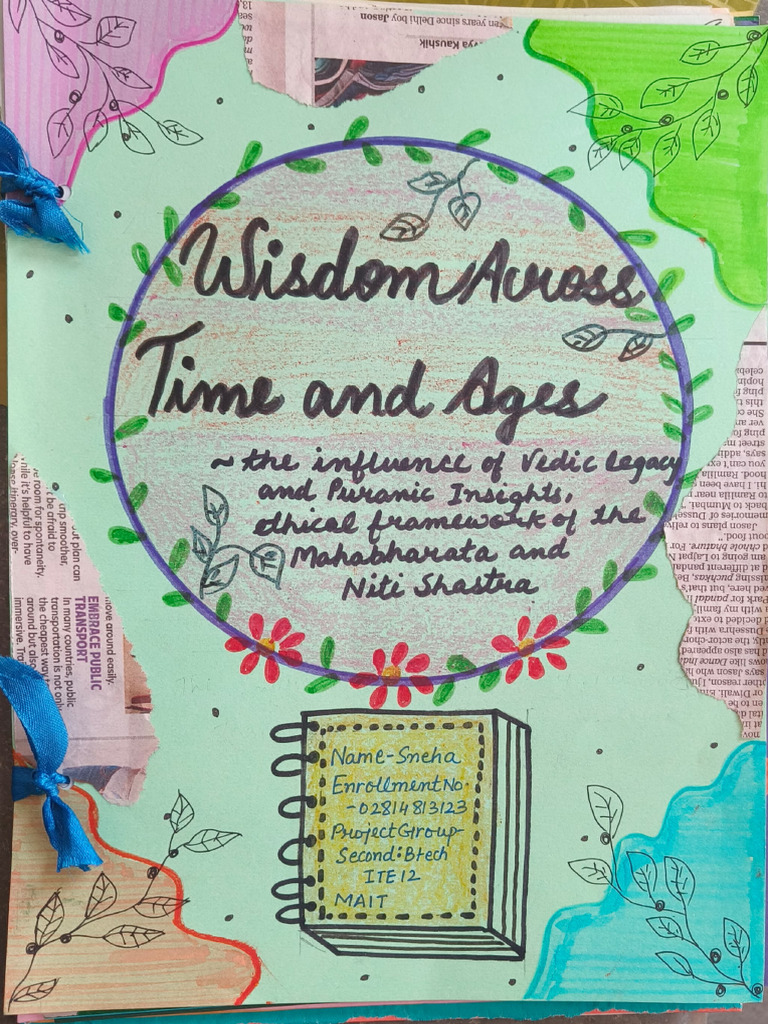 Wisdom Across
Time and Ages
~ the influence of Vedic Legacy
and Puranic Insights,
ethical framework of the
Mahabharata and
Niti Shastra
Name-Sneha
Enrollment No.
-02814813123
Project Group-
Second: Btech
ITE12
MAIT
ten years since Delhi boy Jason
vya Kaushik
EMBRACE PUBLIC
TRANSPORT
move around easily.
In many countries, public
transportation is not only
the cheapest way
around but also
immersive.
plan can
smoother,
be afraid to
room for spontaneity.
while it's helpful to have
itinerary, over-